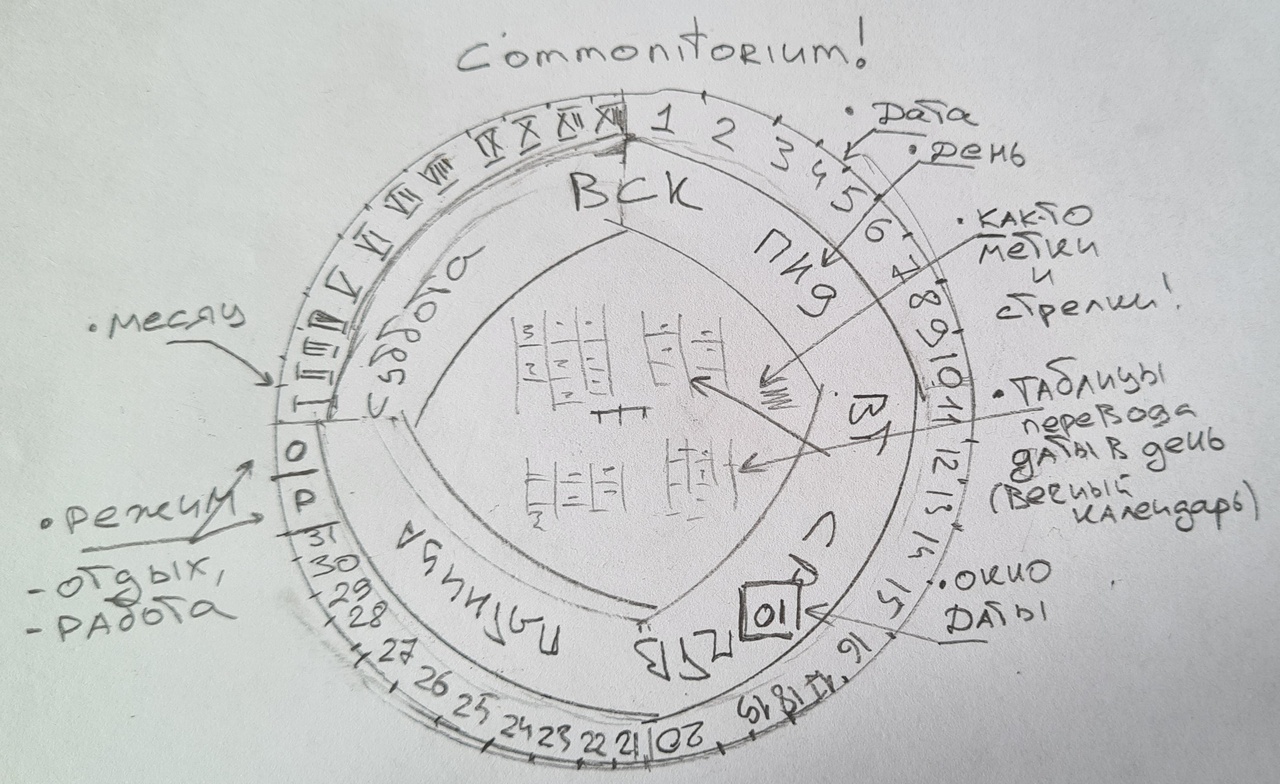 Commonitorium!
• Дата
• День
• как-то
метки
и
стрелки!
• Таблицы
перевода
даты в день
(Вечный
календарь)
• окно
даты
• месяц
• Режим
- отдых,
- Работа
I II III IV V VI VII VIII IX X XI XII
1 2 3 4 5 6 7 8 9 10 11 12 13 14 15 16 17 18 19 20 21 22 23 24 25 26 27 28 29 30 31
Р
О
ВСК
ПНД
ВТ
СР
Пятница
Суббота
10